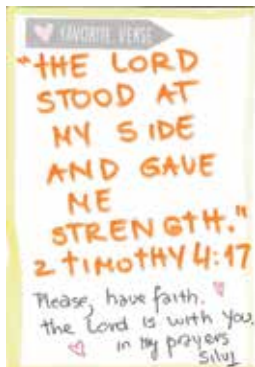 FAVORITE VERSE
"THE LORD
STOOD AT
MY SIDE
AND GAVE
ME
STRENGTH."
2 TIMOTHY 4:17
Please, have faith.
the Lord is with you.
in my prayers
Silvi